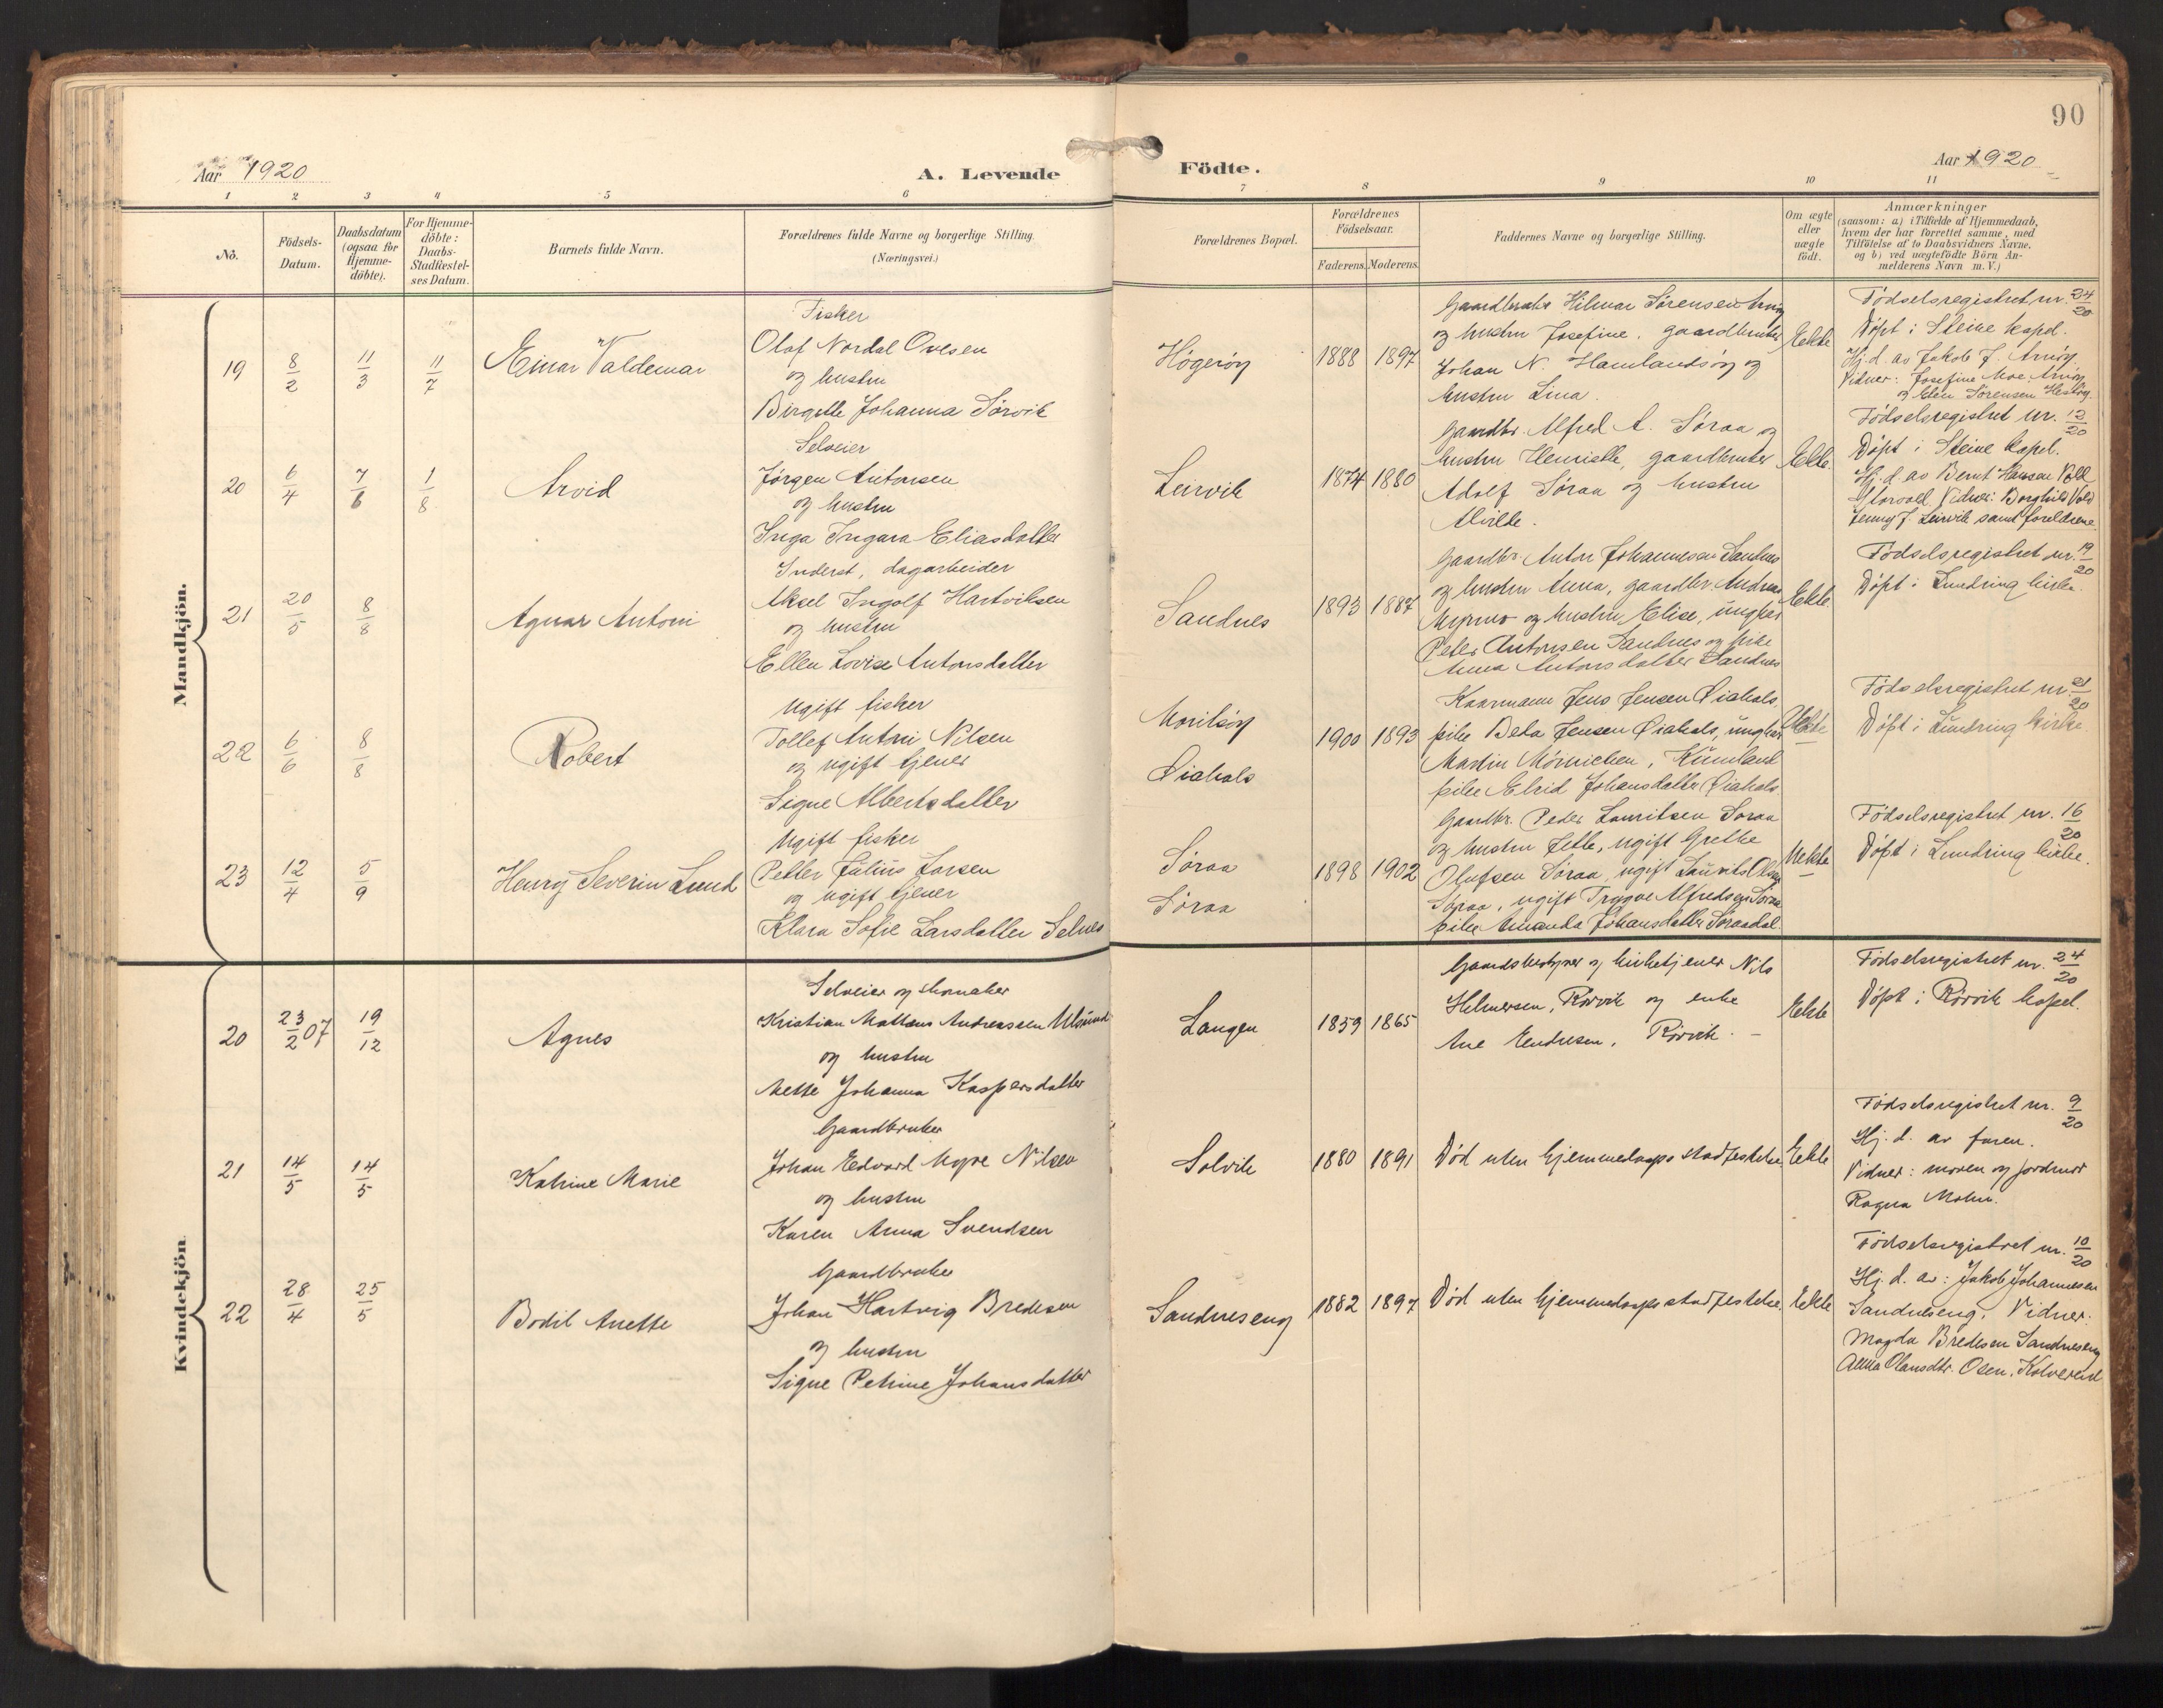 90
Aar 1920
A. Levende
Födte.
Aar 1920
1 2 3 4 5 6 7 8 9 10 11
No.
Födsels-
Datum.
Daabsdatum
(ogsaa for
Hjemme-
döbte).
For Hjemme-
döbte:
Daabs-
Stadfæstel-
ses Datum.
Barnets fulde Navn.
Forældrenes fulde Navne og borgerlige Stilling.
(Næringsvei.)
Forældrenes Bopæl.
Forældrenes
Födselsaar.
Faderens. Moderens.
Faddernes Navne og borgerlige Stilling.
Om ægte
eller
uægte
födt.
Anmærkninger
(saasom: a) i Tilfælde af Hjemmedaab,
hvem der har forrettet samme, med
Tilföielse af to Daabsvidners Navne.
og b) ved uægtefödte Börn An-
melderens Navn m. V.)
Mandkjön.
19
8/2
11/3
11/7
Einar Valdemar
Fisker
Olaf Nordal Ovesen
og hustru
Birgitte Johanna Sørvik
Høgerøy
1888 1897
Gaardbruker Hilmar Sørensen Arnøy
og hustru Josefine, gaardbruker
Johan N. Hamlandsøy og
hustru Lina.
Ekte
Fødselsregistret nr. 24/20
Døpt i Steine kapel.
Hj. d. av Jakob J. Arnøy.
Vidner: Josefine Moe Arnøy
og Elen Sørensen Hestøy.
20
6/4
7/6
1/8
Arvid
Selveier
Jørgen Antonsen
og hustru
Inga Ingara Eliasdatter
Leirvik
1874 1880
Gaardbr. Alfred A. Søraa og
hustru Henriette, gaardbruker
Adolf Søraa og hustru
Alvilde.
Ekte.
Fødselsregistret nr. 12/20
Døpt i Steine kapel.
Hj. d. av Bernt Hansen Vold
Vidner: Borghild Vold
Jenny J. Leirvik samt foreldrene
21
20/5
8/8
Agnar Antoni
Inderst, dagarbeider
Aksel Ingolf Hartviksen
og hustru
Ellen Lovise Antonsdatter
Sandnes
1893 1887
Gaardbr. Anton Johannesen Sandnes
og hustru Anna, gaardbr. Andreas
Myrmo og hustru Elise, ungkar
Peter Antonsen Sandnes og pike
Anna Antonsdatter Sandnes
Ekte.
Fødselsregistret nr. 19/20
Døpt i Lundring kirke.
22
6/6
8/8
Robert
Ugift fisker
Tollef Antoni Nilsen
og ugift tjener
Signe Albertsdatter
Moriksøy
Øiahals
1900 1893
Kaarmann Jens Jensen Øiahals,
pike Beta Jensen Øiahals, ungkar
Martin Mørnichen, Kumland
pike Elrid Johansdatter Øiahals.
Uekte
Fødselsregistret nr. 21/20
Døpt i Lundring kirke.
23
12/4
5/9
Henry Severin Lund
Ugift fisker
Petter Julius Larsen
og ugift tjener
Klara Sofie Larsdatter Selnes
Søraa
Søraa
1898 1902
Gaardbr. Peder Lauritsen Søraa
og hustru Jette, ugift Grethe
Olufsen Søraa, ugift Laurits Olsen
Søraa, ugift Trygve Alfredsen Søraa
pike Amanda Johansdatter Søraadal.
Uekte
Fødselsregistret nr. 16/20
Døpt i Lundring kirke.
Kvindekjön.
20
23/2 07
19/12
Agnes
Selveier og skomaker
Kristian Mattæus Andreassen Ulsund
og hustru
Mette Johanna Kaspersdatter
Langen
1859 1865
Gaardsbestyrer og kirketjener Nils
Hilmersen, Rørvik og enke
Ane Endresen, Rørvik. –
Ekte
Fødselsregistret nr. 24/20
Døpt i Rørvik kapel.
21
14/5
14/5
Katrine Marie
Gaardbruker
Johan Edvard Myre Nilsen
og hustru
Karen Anna Svendsen
Solvik
1880 1891
Død uten hjemmedaaps stadfestelse.
Ekte
Fødselsregistret nr. 9/20
Hj. d. av faren.
Vidner: moren og jordmor
Ragna Mohn.
22
28/4
25/5
Bodil Anette
Gaardbruker
Johan Hartvig Bredesen
og hustru
Signe Petrine Johansdatter
Sandneseng
1882 1897
Død uten hjemmedaaps stadfestelse.
Ekte
Fødselsregistret nr. 10/20
Hj. d. av: Jakob Johannesen
Sandneseng. Vidner:
Magda Bredesen Sandneseng
Anna Olansdtr. Osen, Kolvereid